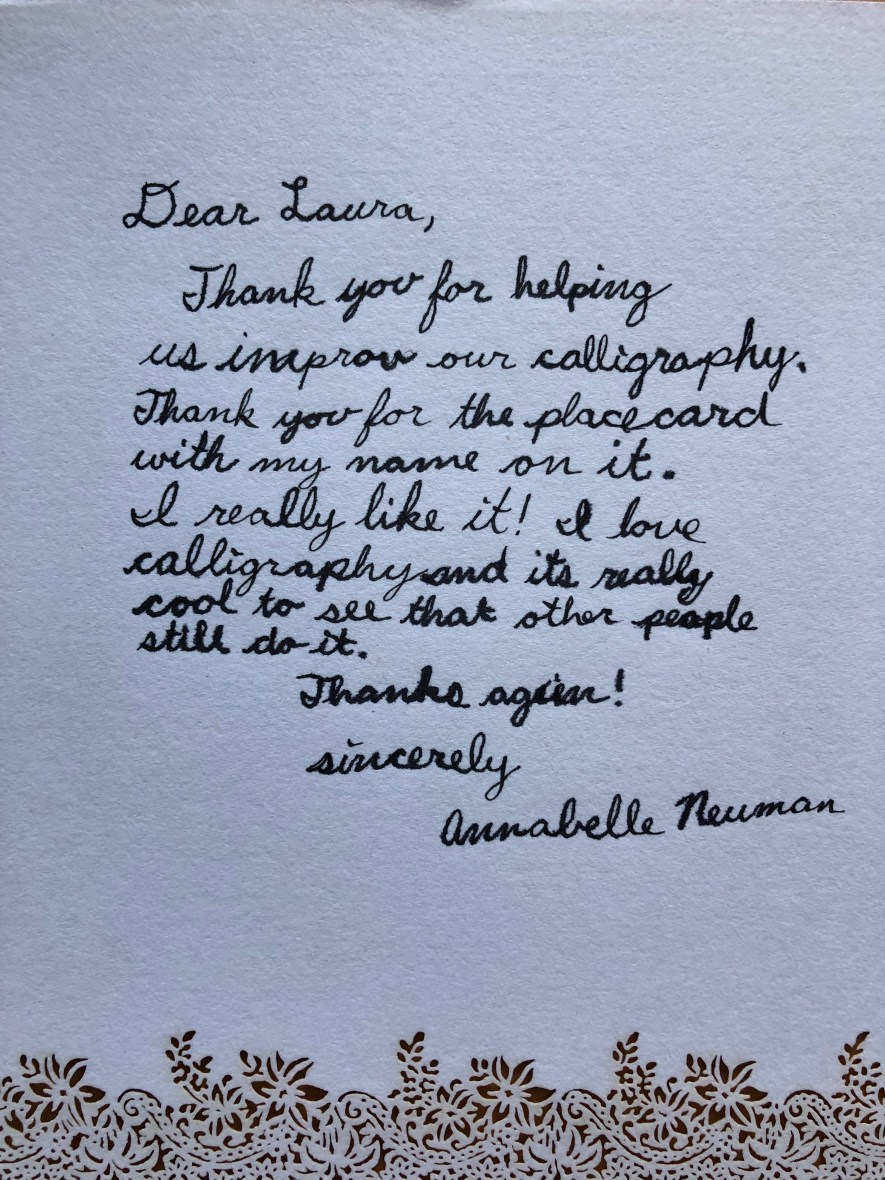 Dear Laura,
Thank you for helping
us improv our calligraphy.
Thank you for the placecard
with my name on it.
I really like it! I love
calligraphy and its really
cool to see that other people
still do it.
Thanks again!
sincerely
Annabelle Neuman